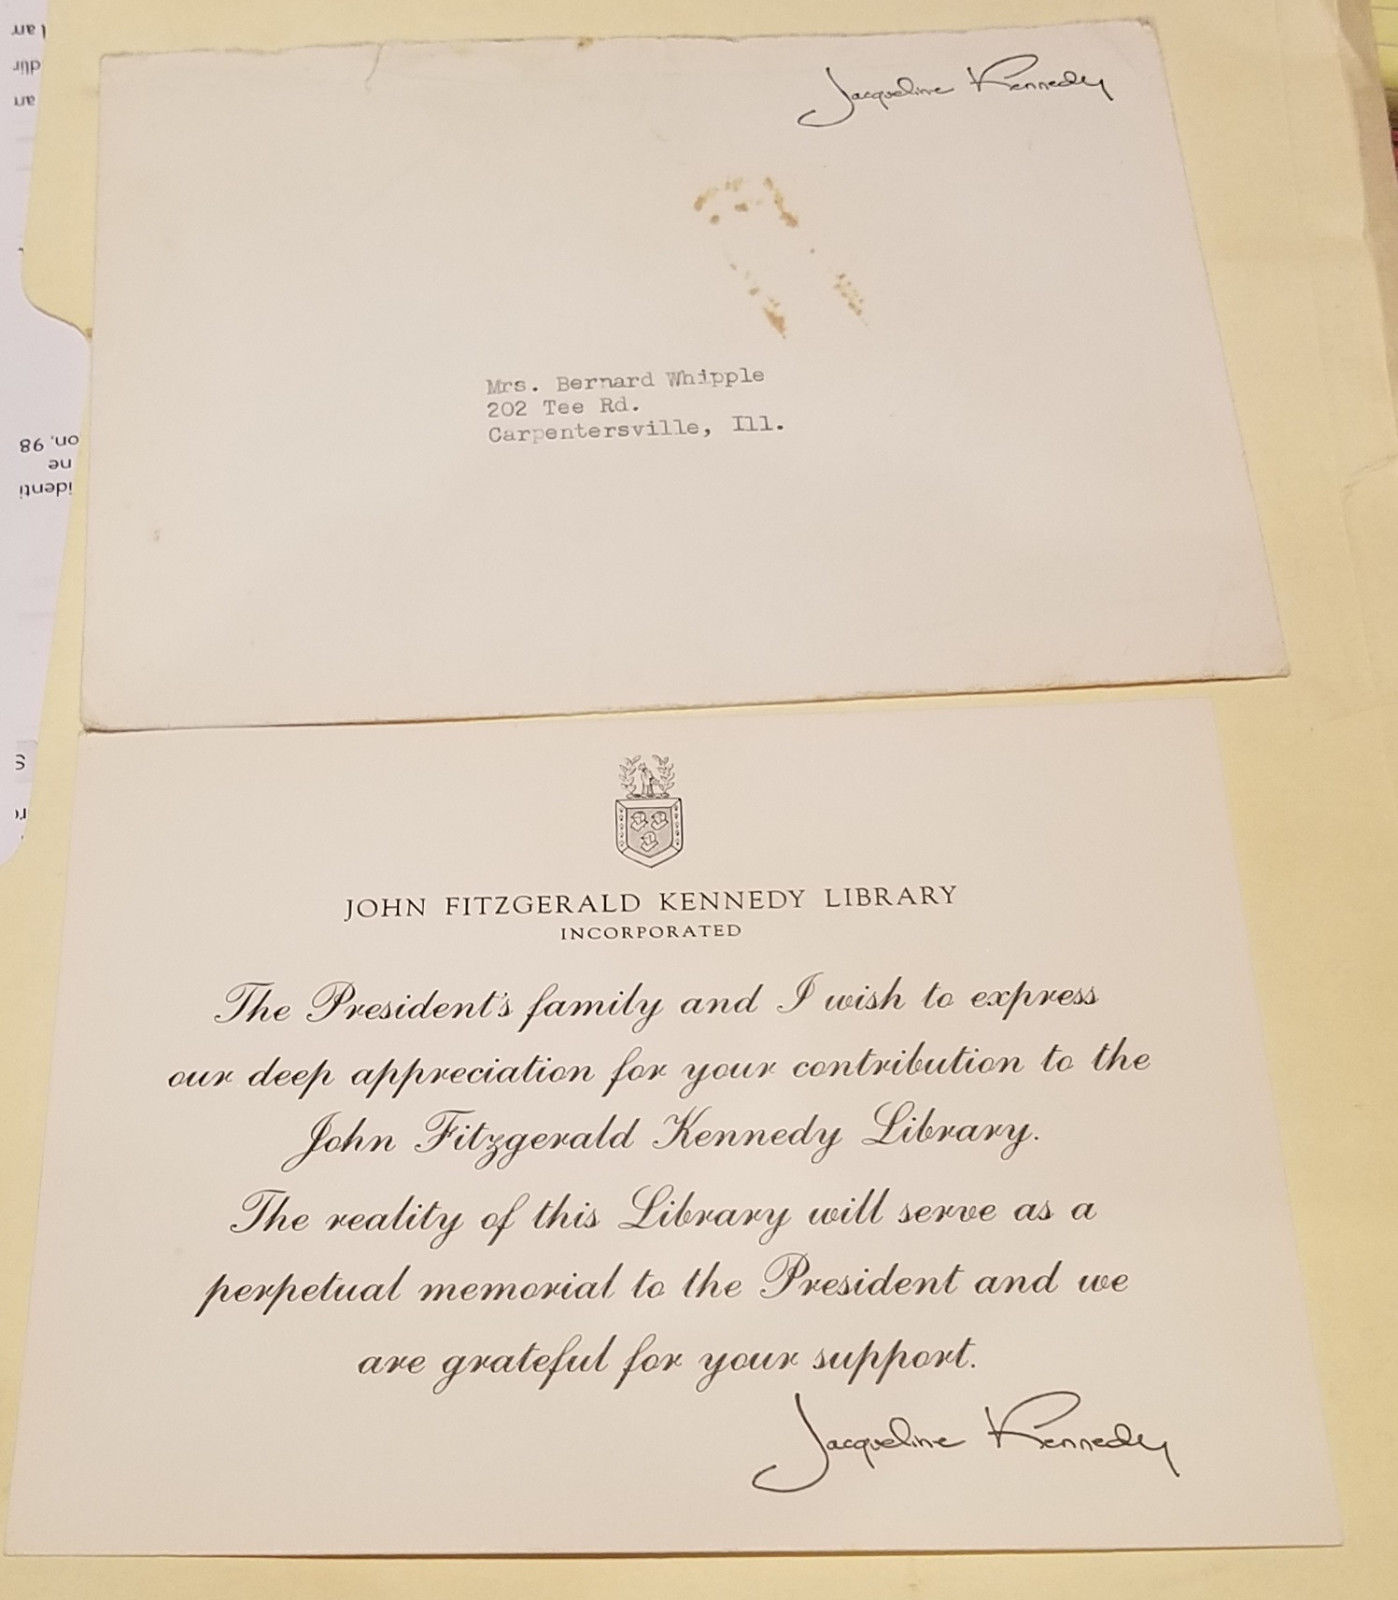 Jacqueline Kennedy
Mrs. Bernard Whipple
202 Tee Rd.
Carpentersville, Ill.
JOHN FITZGERALD KENNEDY LIBRARY
INCORPORATED
The President's family and I wish to express
our deep appreciation for your contribution to the
John Fitzgerald Kennedy Library.
The reality of this Library will serve as a
perpetual memorial to the President and we
are grateful for your support.
Jacqueline Kennedy
identi
ne
on, 98